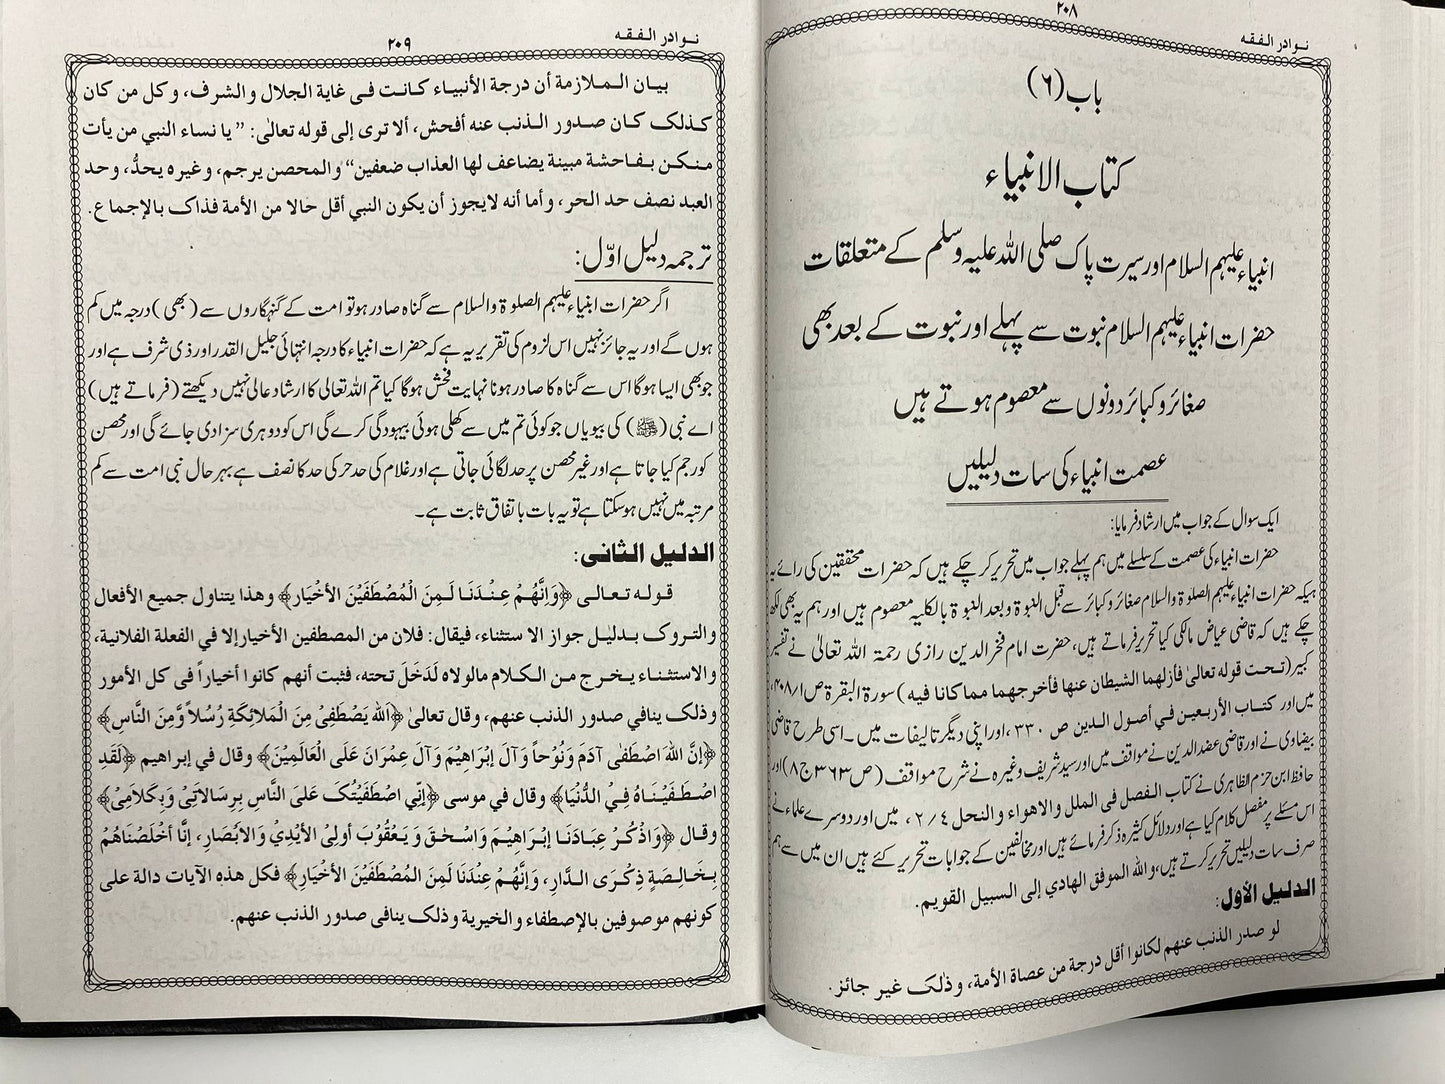 نوادر الفقہ
۲۰۸
باب (۶)
کتاب الانبیاء
انبیاء علیہم السلام اور سیرت پاک صلی اللہ علیہ وسلم کے متعلقات
حضرات انبیاء علیہم السلام نبوت سے پہلے اور نبوت کے بعد بھی
صغائر و کبائر دونوں سے معصوم ہوتے ہیں
عصمت انبیاء کی سات دلیلیں
ایک سوال کے جواب میں ارشاد فرمایا:
حضرات انبیاء کی عصمت کے سلسلے میں ہم پہلے جواب میں تحریر کر چکے ہیں کہ حضرات محققین کی رائے یہ
ہیکہ حضرات انبیاء علیہم الصلوۃ والسلام صغائر و کبائر سے قبل النبوۃ و بعد النبوۃ بالکلیہ معصوم ہیں اور ہم یہ بھی لکھ
چکے ہیں کہ قاضی عیاض مالکی کیا تحریر فرماتے ہیں، حضرت امام فخر الدین رازی رحمۃ اللہ تعالیٰ نے تفسیر
کبیر (تحت قوله تعالیٰ فأزلهما الشيطان عنها فأخرجهما مما كانا فيه) سورة البقرة ص۱/۴۰۸،
میں اور کتاب الأربعین في أصول الدین ص ۳۳۰، اور اپنی دیگر تالیفات میں۔ اسی طرح قاضی
بیضاوی نے اور قاضی عضد الدین نے مواقف میں اور سید شریف وغیرہ نے شرح مواقف (ص۳۶۳ ج۸) اور
حافظ ابن حزم الظاہری نے کتاب الفصل فی الملل والاهواء والنحل ۲/۴، میں اور دوسرے علماء نے
اس مسئلے پر مفصل کلام کیا ہے اور دلائل کثیرہ ذکر فرمائے ہیں اور مخالفین کے جوابات تحریر کئے ہیں ان میں سے ہم
صرف سات دلیلیں تحریر کرتے ہیں، والله الموفق الهادي إلى السبيل القويم.
الدليل الأول:
لو صدر الذنب عنهم لكانوا أقل درجة من عصاة الأمة، وذلک غير جائز.
نوادر الفقہ
۲۰۹
بيان الملازمة أن درجة الأنبياء كانت فى غاية الجلال والشرف، وكل من كان
كذلک كان صدور الذنب عنه أفحش، ألا ترى إلى قوله تعالىٰ: ”يا نساء النبي من يأت
منكن بفاحشة مبينة يضاعف لها العذاب ضعفين“ والمحصن يرجم، وغيره يحدُّ، وحد
العبد نصف حد الحر، وأما أنه لايجوز أن يكون النبي أقل حالا من الأمة فذاک بالإجماع.
ترجمہ دلیل اوّل:
اگر حضرات انبیاء علیہم الصلوۃ والسلام سے گناہ صادر ہو تو امت کے گنہگاروں سے (بھی) درجہ میں کم
ہوں گے اور یہ جائز نہیں اس لزوم کی تقریر یہ ہے کہ حضرات انبیاء کا درجہ انتہائی جلیل القدر اور ذی شرف ہے اور
جو بھی ایسا ہوگا اس سے گناہ کا صادر ہونا نہایت فحش ہوگا کیا تم اللہ تعالی کا ارشاد عالی نہیں دیکھتے (فرماتے ہیں)
اے نبی (ﷺ) کی بیویاں جو کوئی تم میں سے کھلی ہوئی بیہودگی کرے گی اس کو دوہری سزا دی جائے گی اور محصن
کو رجم کیا جاتا ہے اور غیر محصن پر حد لگائی جاتی ہے اور غلام کی حد حر کی حد کا نصف ہے بہر حال نبی امت سے کم
مرتبہ میں نہیں ہو سکتا ہے تو یہ بات باتفاق ثابت ہے۔
الدليل الثانى:
قوله تعالى ﴿وَإِنَّهُمْ عِنْدَنَا لَمِنَ الْمُصْطَفَيْنَ الأخْيَارِ﴾ وهذا يتناول جميع الأفعال
والتروک بدليل جواز الاستثناء، فيقال: فلان من المصطفين الأخيار إلا في الفعلة الفلانية،
والاستثناء يخرج من الكلام مالولاه لَدَخَلَ تحته، فثبت أنهم كانوا أخياراً في كل الأمور
وذلک ينافي صدور الذنب عنهم، وقال تعالىٰ ﴿اَللّٰه يَصْطَفِيْ مِنَ الْمَلَائِكَةِ رُسُلاً وَّمِنَ النَّاسِ﴾
﴿إنَّ اللّٰهَ اصْطَفىٰ آدَمَ وَنُوْحاً وَآلَ إبْرَاهِيْمَ وَآلَ عِمْرَانَ عَلَى الْعَالَمِيْنَ﴾ وقال في إبراهيم ﴿لَقَدِ
اصْطَفَيْنَاهُ فِيْ الدُّنْيَا﴾ وقال في موسى ﴿إنِّي اصْطَفَيْتُکَ عَلىَ النَّاسِ بِرِسَالاَتِيْ وَبِكَلاَمِيْ﴾
وقال ﴿وَاذْكُرْ عِبَادَنَا إبْرَاهِيْمَ وَاسْحٰقَ وَيَعْقُوْبَ أولِىْ الأيْدِيْ وَالابْصَارِ، إنَّا أخْلَصْنَاهُمْ
بِخَالِصَةٍ ذِكْرَى الدَّارِ، وَإنَّهُمْ عِنْدَنَا لَمِنَ المُصْطَفَيْنَ الأخْيَارِ﴾ فكل هذه الآيات دالة على
كونهم موصوفين بالإصطفاء والخيرية وذلک ينافى صدور الذنب عنهم.